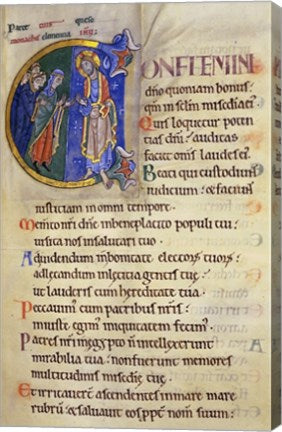 Parce tuis queso
monachis clementia IHU
CONFITEMINI
dño quoniam bonus:
qm in sclm misedia ei'.
Quis loquetur poten
tias dñi: auditas
faciet oms laudes ei'.
Beati qui custodiunt
iudicium: & faciunt
iusticiam in omni tempore.
Memto nri dñe in beneplacito populi tui:
uisita nos in salutari tuo.
Ad uidendum in bonitate electorū tuorū:
ad letandum in leticia gentis tue:
ut lauderis cum hereditate tua.
Peccauim' cum patribus nris:
iniuste egim' iniquitatem fecim'.
Patres nri in egypto ñ intellexerunt
mirabilia tua: non fuerunt memores
multitudinis misedie tue.
Et irritauert ascendentes in mare mare
rubrū: & saluauit eos ppt nom suum: